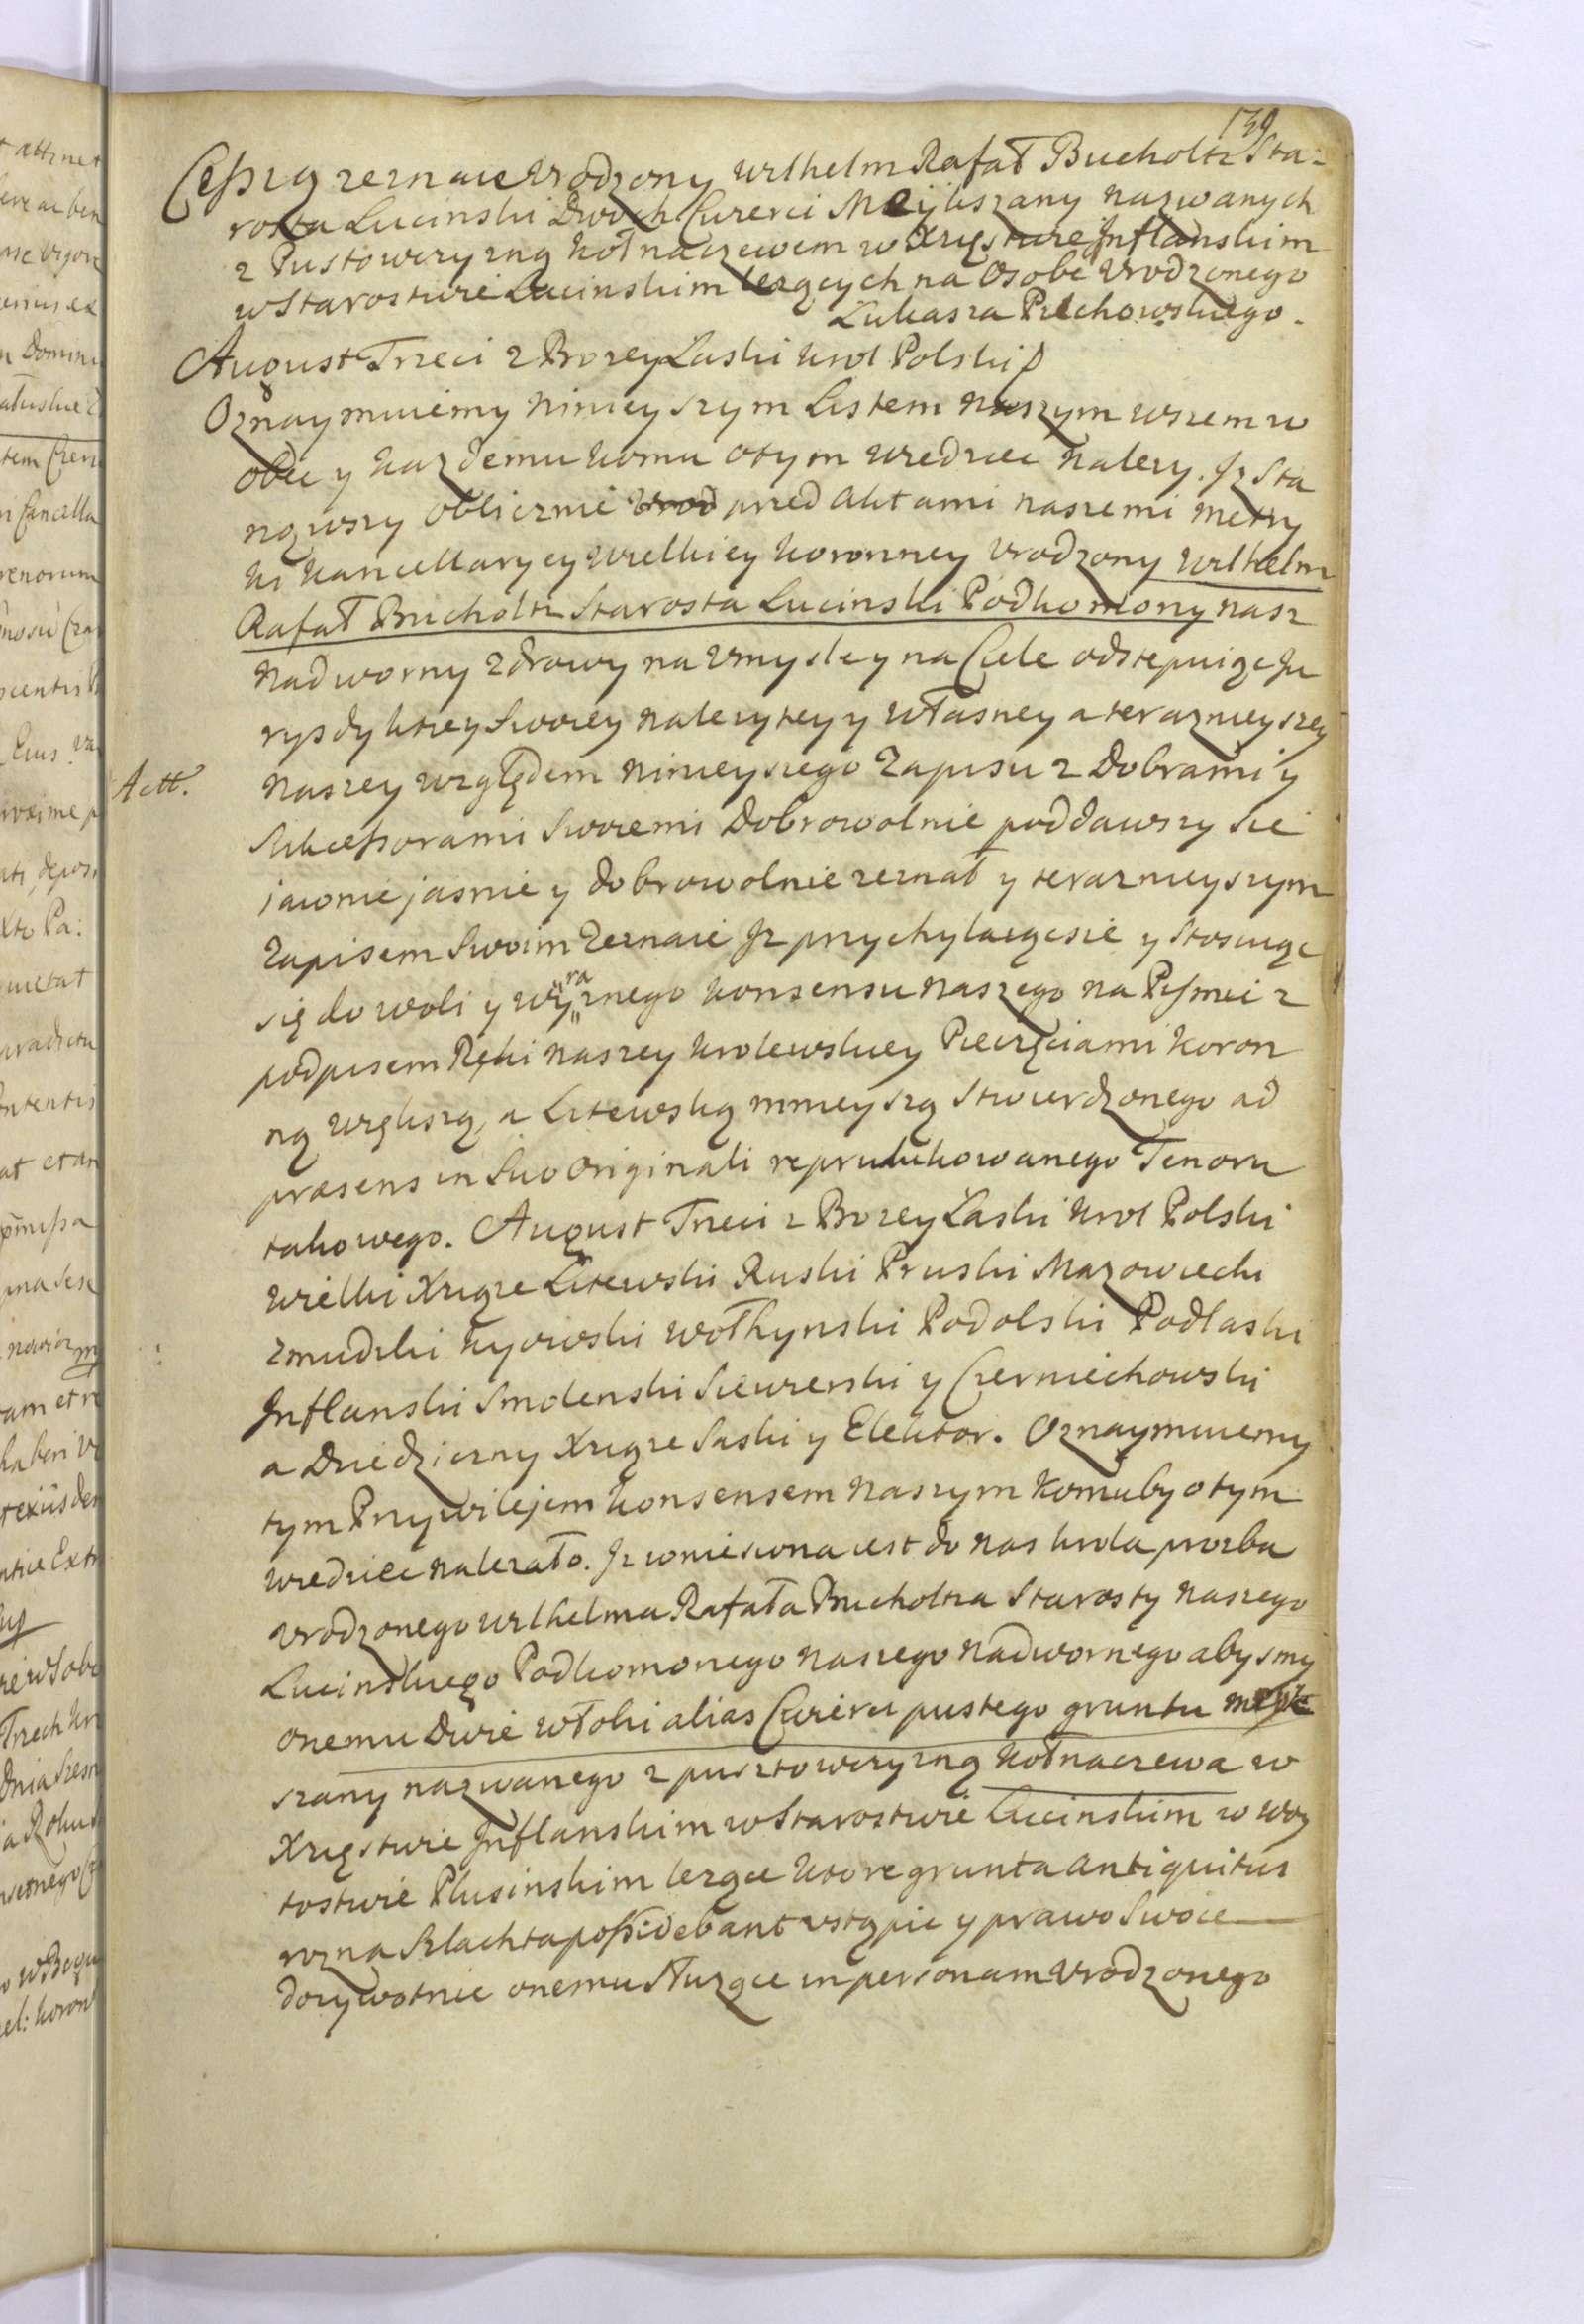 139
Cessyą zeznaie Vrodzony Wilhelm Rafał Bucholtz Sta-
rosta Lucinski Dwoch Curerci Meÿkszany nazwanych
z Pustowczyzną Kołnaczewem w Xięstwie Inflanskim
w Starostwie Lucinskim lezących na Osobe Vrodzonego
Lukasza Puchowskiego.
August Trzeci z Bozey Laski Krol Polski
Oznaymuiemy Ninieyszym Listem naszym wszem w
obec y kazdemu komu otym wiedziec nalezy. Iz Sta
nąwszy oblicznie Vrod przed Aktami naszemi Metry
ki Kancellaryey Wielkiey Koronney Vrodzony Wilhelm
Rafał Bucholtz Starosta Lucinski Podkomony nasz
Nadworny zdrowy na Vmysle y na Ciele odstepuiąc Ju
rysdykcyey Swoiey nalezytey y własney a teraznieyszey
Actt.
naszey względem ninieyszego Zapisu z Dobrami y
Sukcessorami Swoiemi Dobrowolnie poddawszy sie
jawnie jasnie y dobrowolnie zeznał y teraznieyszym
Zapisem Swoim Zeznaie Iz przychylaiącsie y Stosuiąc
się do woli y wyraznego konsensu naszego na Pismie z
podpisem Ręki naszey krolewskiey Pieczęciami koron
ną większą, a Litewską mnieyszą stwierdzonego ad
præsens in Suo Originali reprodukowanego Tenoru
takowego. August Trzeci z Bozey Łaski Krol Polski
Wielki Xiąze Litewski Ruski Pruski Mazowiecki
Zmudzki Kyowski Wołhynski Podolski Podlaski
Inflanski Smolenski Siewierski y Czerniechowski
a Dziedziczny Xiąze Saski y Elektor. Oznaymuiemy
tym Przywilejem konsensem Naszym komuby o tym
wiedziec nalezało. Iz wniesiona iest do nas krola prozba
Vrodzonego Wilhelma Rafała Bucholtza Starosty Naszego
Lucinskiego Podkomonego naszego nadwornego abysmy
onemu Dwie włoki alias Curerci pustego gruntu Meÿk
szany nazwanego z pusztowczyzną Kołnaczewa w
Xięstwie Inflanskim w Starostwie Lucinskim w Woy
tostwie Plusinskim lezące ktore grunta antiquitus
rozna Szlachta possidebant vstąpic y prawo Swoie
dozywotnie onemu słuzące in personam Vrodzonego